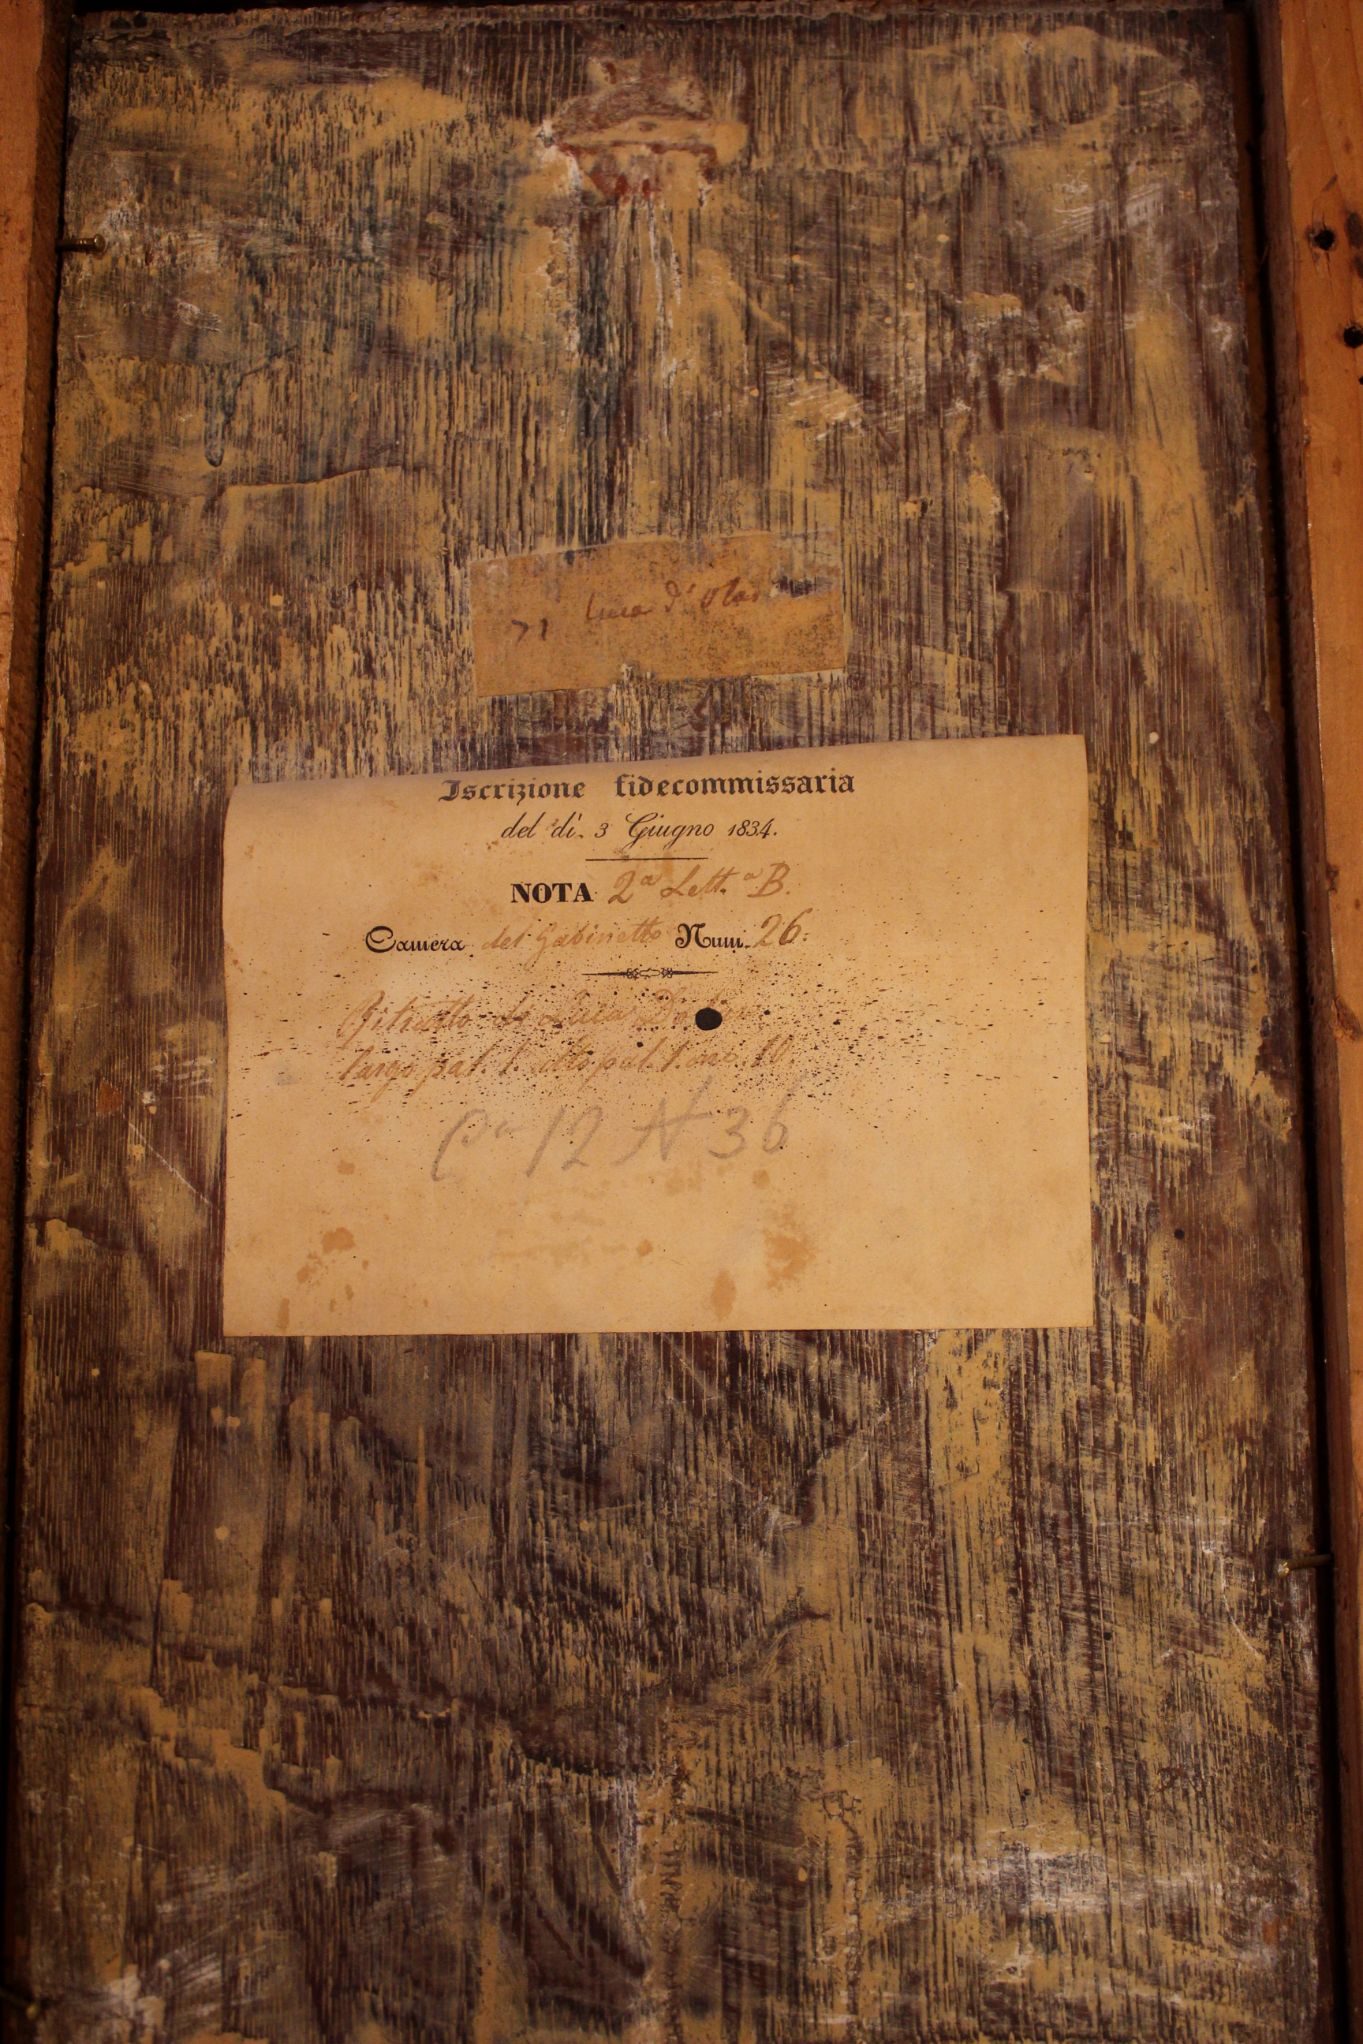 71 Luca d'Olan
Iscrizione fidecommissaria
del dì 3 Giugno 1834.
NOTA 2ª Lett.ª B.
Camera del Gabinetto Num. 26.
Ritratto di Luca
largo pal. 1. alto pal. 1. onc. 10.
Cª 12 N 36